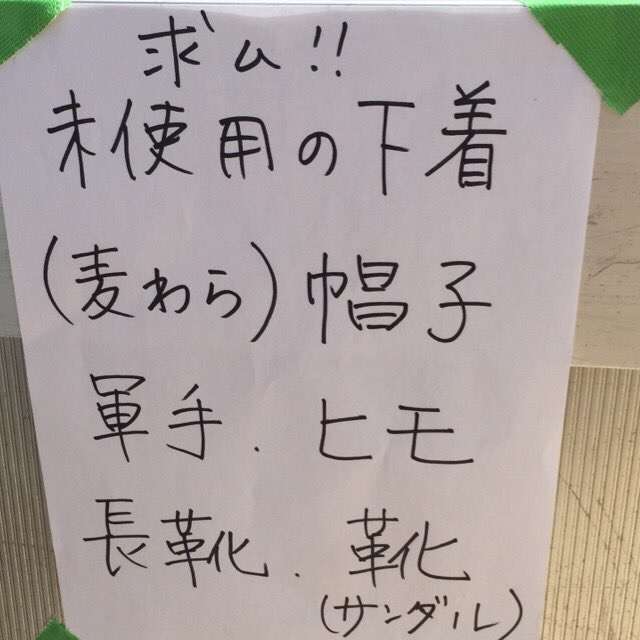 求ム!!
未使用の下着
(麦わら)帽子
軍手.ヒモ
長靴.靴
(サンダル)